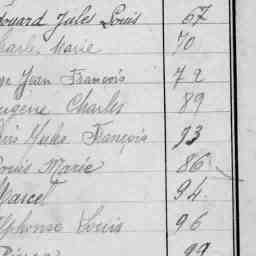 Édouard Jules Louis 67
Charles Marie 70
Jean François 72
Eugène Charles 89
Jules François 93
Louis Marie 86
Marcel 94
Alphonse Louis 96
99